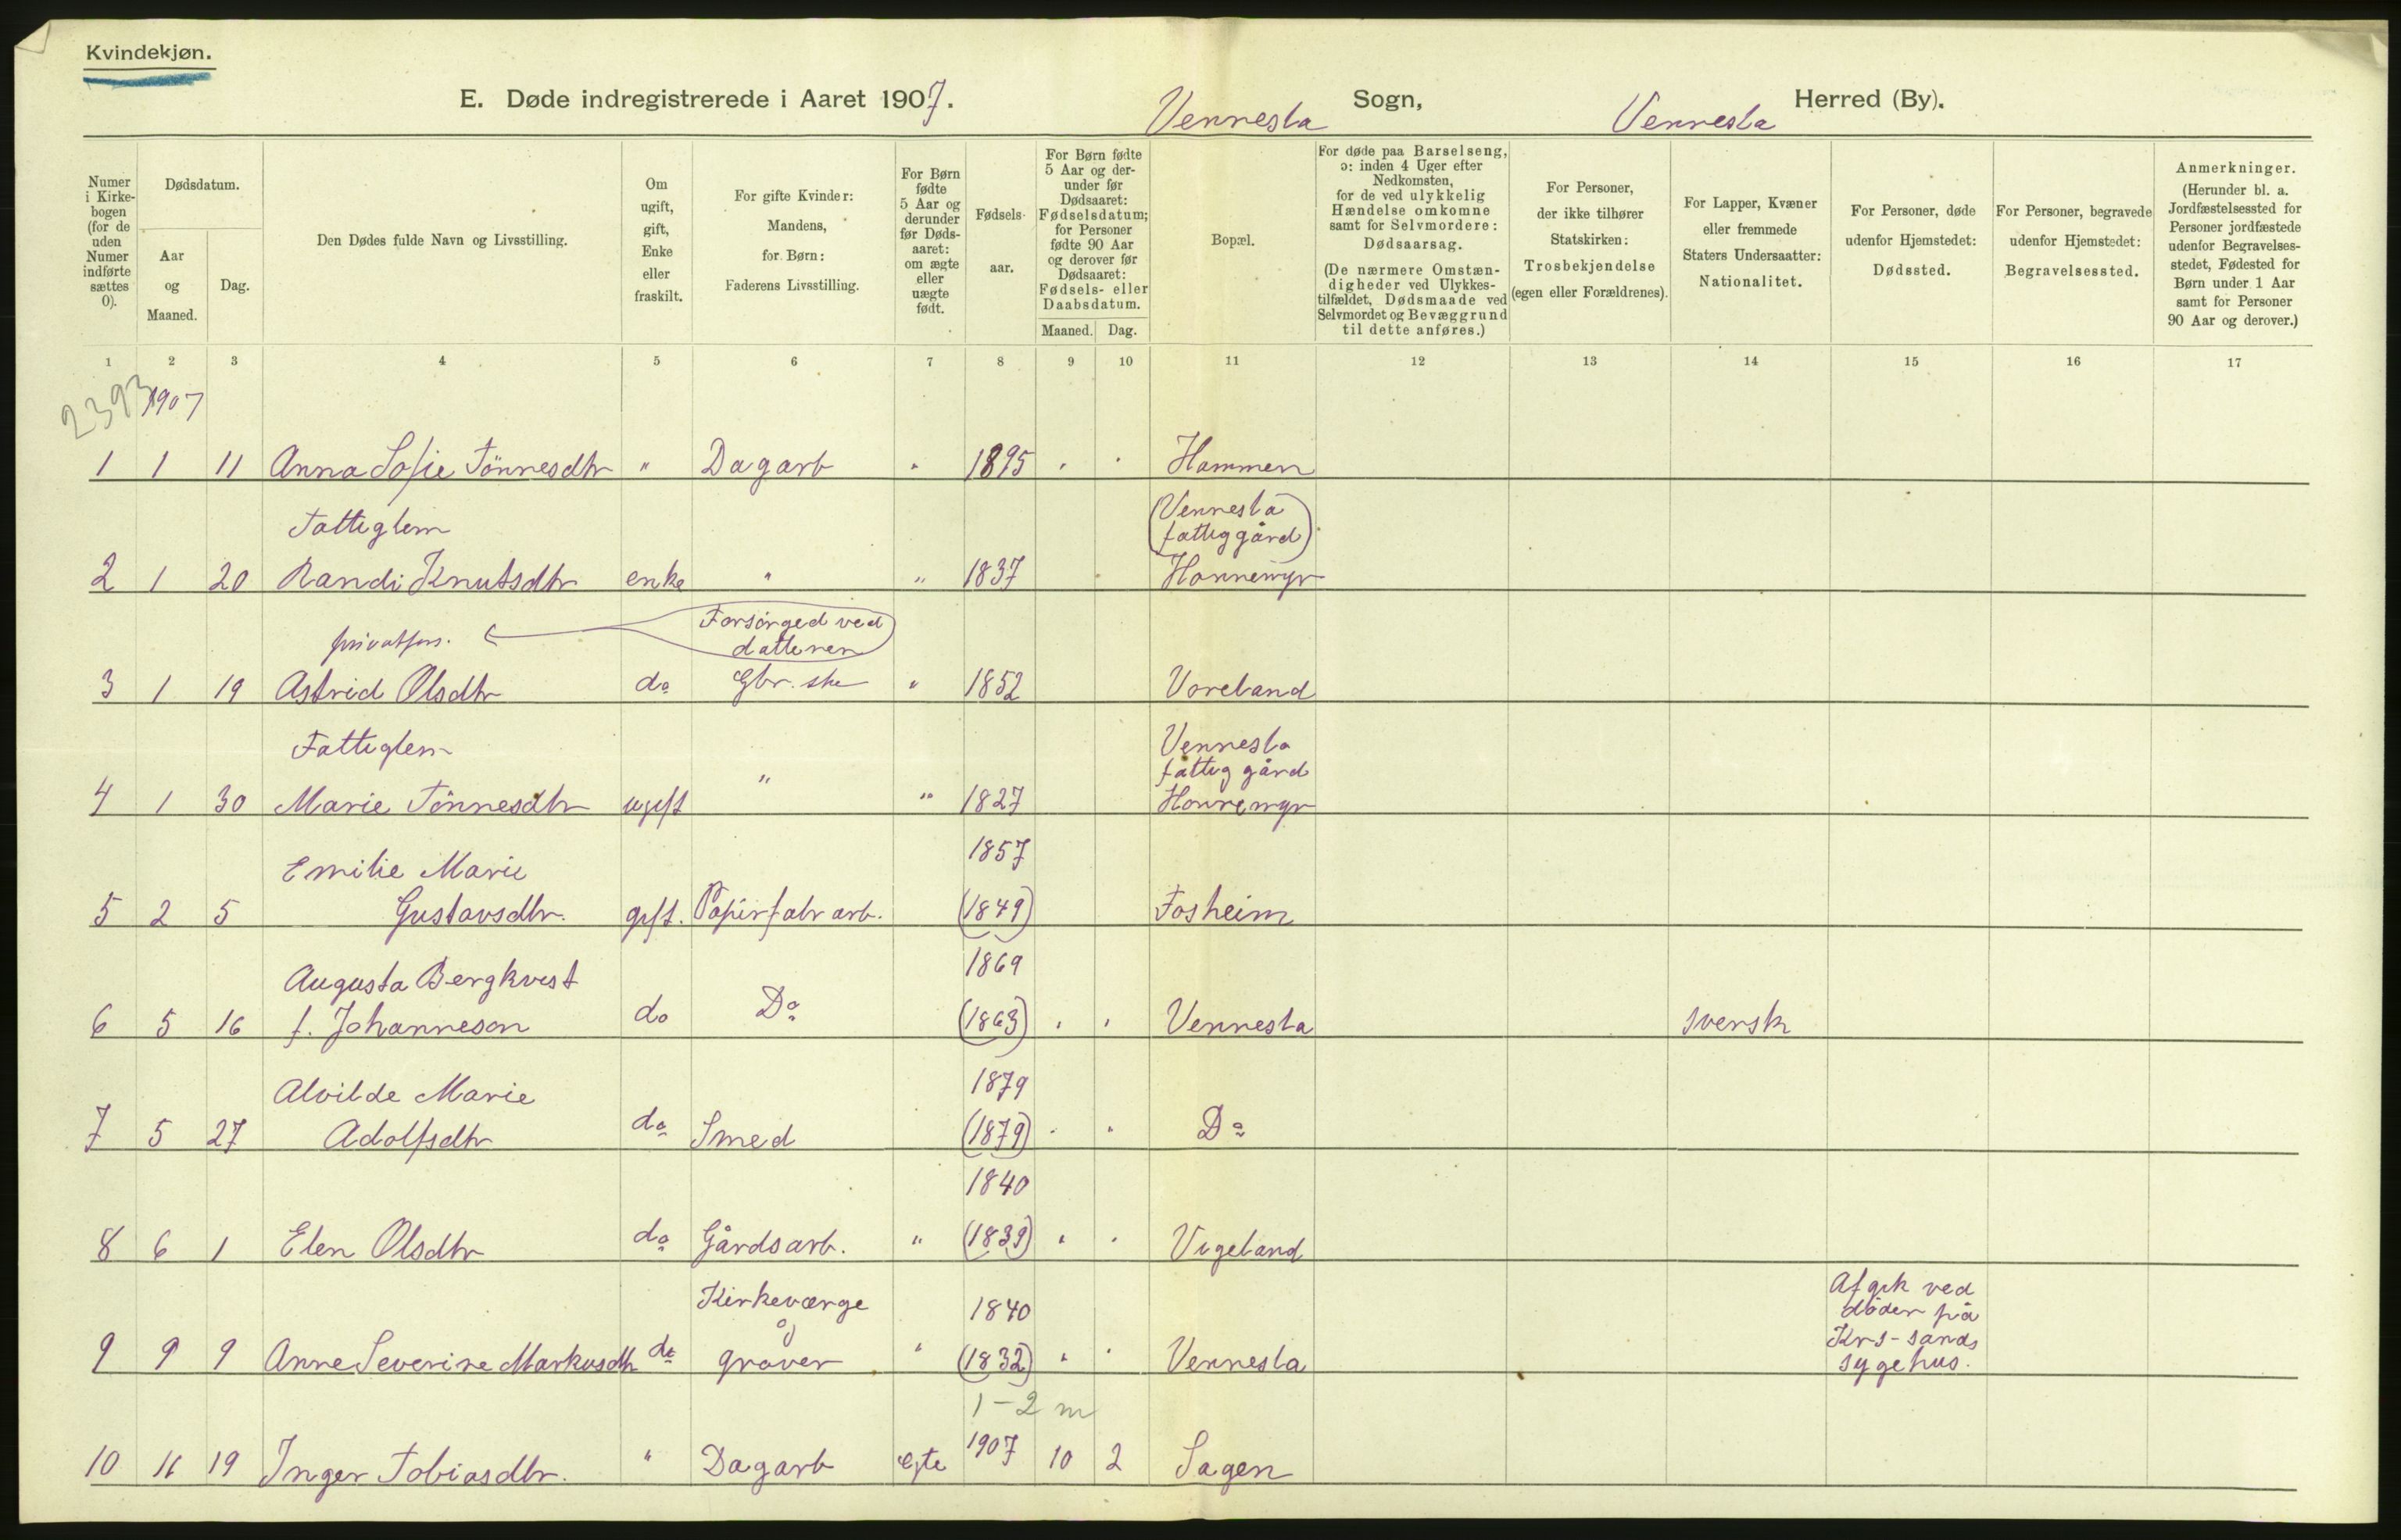 Kvindekjøn.
E. Døde indregistrerede i Aaret 1907. Vennesla Sogn, Vennesla Herred (By).
Numer i Kirkebogen (for de uden Numer indførte sættes 0).
Dødsdatum.
Aar og Maaned.
Dag.
Den Dødes fulde Navn og Livsstilling.
Om ugift, gift, Enke eller fraskilt.
For gifte Kvinder: Mandens, for Børn: Faderens Livsstilling.
For Børn fødte 5 Aar og derunder før Dødsaaret: om ægte eller uægte født.
Fødselsaar.
For Børn fødte 5 Aar og derunder før Dødsaaret: Fødselsdatum; for Personer fødte 90 Aar og derover før Dødsaaret: Fødsels- eller Daabsdatum.
Maaned. Dag.
Bopæl.
For døde paa Barselseng, ɔ: inden 4 Uger efter Nedkomsten, for de ved ulykkelig Hændelse omkomne samt for Selvmordere: Dødsaarsag.
(De nærmere Omstændigheder ved Ulykkestilfældet, Dødsmaade ved Selvmordet og Bevæggrund til dette anføres.)
For Personer, der ikke tilhører Statskirken: Trosbekjendelse (egen eller Forældrenes).
For Lapper, Kvæner eller fremmede Staters Undersaatter: Nationalitet.
For Personer, døde udenfor Hjemstedet: Dødssted.
For Personer, begravede udenfor Hjemstedet: Begravelsessted.
Anmerkninger.
(Herunder bl. a. Jordfæstelsessted for Personer jordfæstede udenfor Begravelsesstedet, Fødested for Børn under 1 Aar samt for Personer 90 Aar og derover.)
1 2 3 4 5 6 7 8 9 10 11 12 13 14 15 16 17
2393 1907
1 1 11 Anna Sofie Tönnesdtr " Dagarb " 1895 " " Hammen
Fattiglem (Vennesla
fattiggård)
2 1 20 Randi Knutsdtr enke " " 1837 Honnemyr
Forsörged ved
privatfors. datteren
3 1 19 Astrid Olsdtr do Gbr. ske " 1852 Voreland
Fattiglem Vennesla
fattig gård
4 1 30 Marie Tönnesdtr ugift " " 1827 Honnemyr
Emilie Marie 1857
5 2 5 Gustavsdtr. gift. Papirfabr arb. (1849) Fosheim
Augusta Bergkvist 1869
6 5 16 f. Johanneson do Do (1863) " " Vennesla svensk
Alvilde Marie 1879
7 5 27 Adolfsdtr do Smed (1879) " " Do
1840
8 6 1 Elen Olsdtr do Gårdsarb. " (1839) " " Vigeland
Kirkeværge 1840 Afgik ved
og döden på
Krs-sands
9 9 9 Anne Severine Markusdtr do graver " (1832) " " Vennesla sygehus.
1-2 m
10 11 19 Inger Tobiasdtr. " Dagarb egte 1907 10 2 Sagen